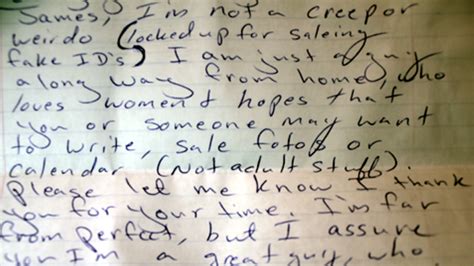 James, I'm not a creep or
weirdo (locked up for saleing
fake ID's) I am just a guy
a long way from home, who
loves women & hopes that
you or someone may want
to write, sale fotos or
calendar (Not adult stuff).
Please let me know I thank
you for your time. I'm far
from perfect, but I assure
you I'm a great guy, who